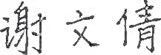 谢文倩